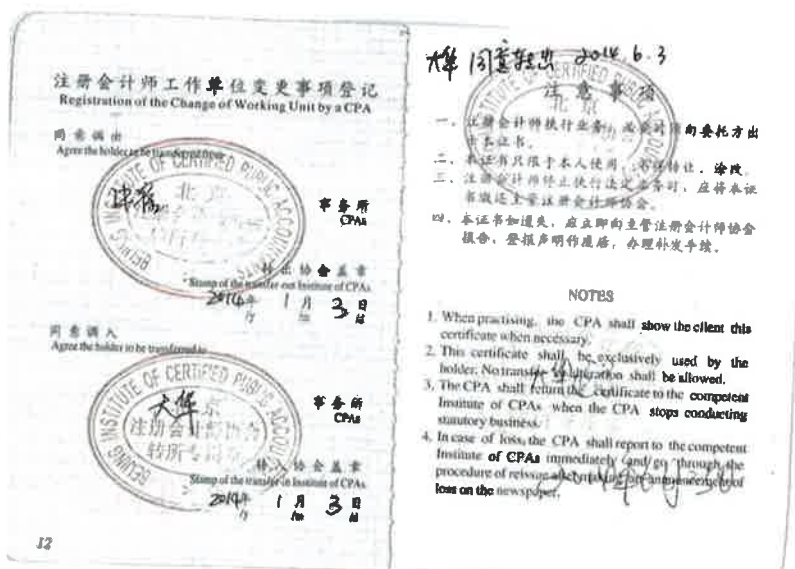 注册会计师工作单位变更事项登记
Registration of the Change of Working Unit by a CPA
同意调出
Agree the holder to be transferred from
BEIJING INSTITUTE OF CERTIFIED PUBLIC ACCOUNTANTS
北京
事务所
CPAs
转出协会盖章
Stamp of the transfer-out Institute of CPAs
2014年 1月 3日
/y /m /d
同意调入
Agree the holder to be transferred to
BEIJING INSTITUTE OF CERTIFIED PUBLIC ACCOUNTANTS
大华
北京
注册会计师协会
转所专用章
事务所
CPAs
转入协会盖章
Stamp of the transfer-in Institute of CPAs
2014年 1月 3日
/y /m /d
12
大华 同意转出 2014.6.3
INSTITUTE OF CERTIFIED PUBLIC
北京
注意事项
一、注册会计师执行业务，必要时须向委托方出
示本证书。
二、本证书只限于本人使用，不得转让、涂改。
三、注册会计师停止执行法定业务时，应将本证
书缴还主管注册会计师协会。
四、本证书如遗失，应立即向主管注册会计师协会
报告，登报声明作废后，办理补发手续。
NOTES
1. When practising, the CPA shall show the client this
certificate when necessary.
2. This certificate shall be exclusively used by the
holder. No transfer or alteration shall be allowed.
3. The CPA shall return the certificate to the competent
Institute of CPAs when the CPA stops conducting
statutory business.
4. In case of loss, the CPA shall report to the competent
Institute of CPAs immediately and go through the
procedure of reissue after making an announcement of
loss on the newspaper.